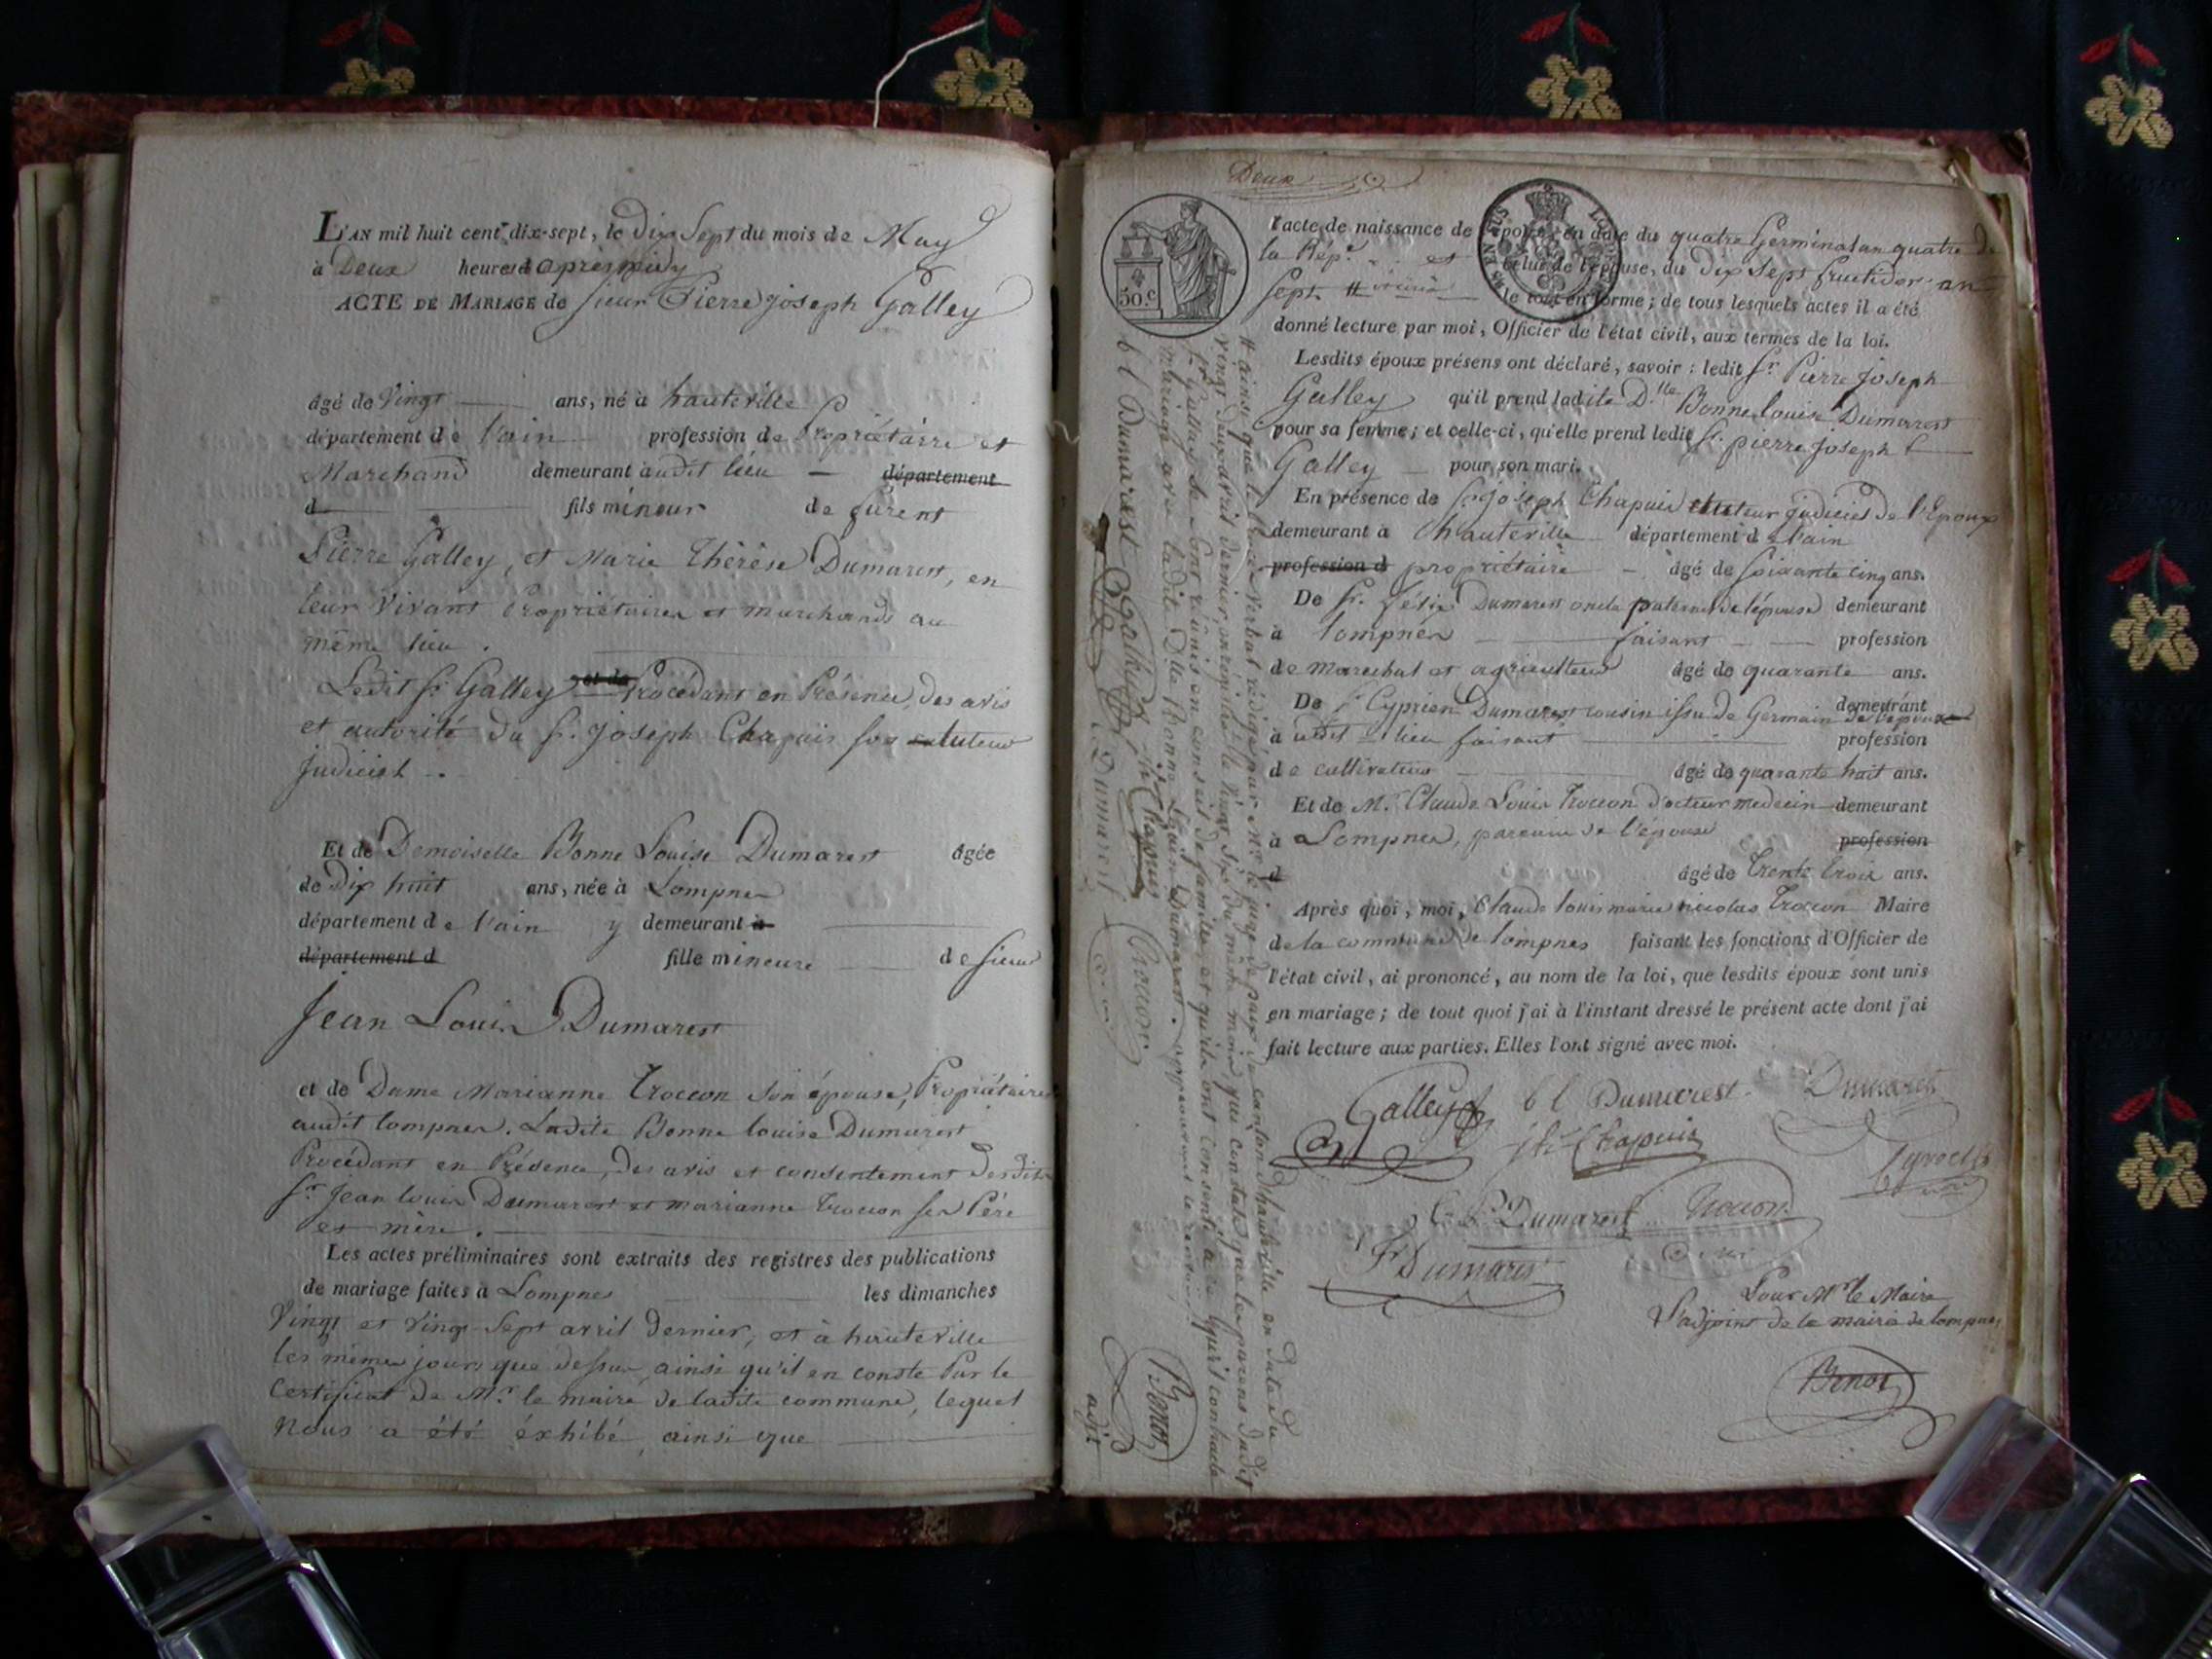 L'AN mil huit cent dix-sept, le Dix Sept du mois de May
à Deux heures d apres midy
ACTE DE MARIAGE de Sieur Pierre joseph Galley
âgé de Vingt ans, né à hauteville
département de l'ain profession de Propriétaire et
Marchand demeurant audit lieu département
d fils mineur de furent
Pierre Galley, et Marie Thérèse Dumarest, en
leur Vivant Propriétaires et marchands au
même lieu.
Ledit Sr Galley et de Procédant en Présence, des avis
et autorité du Sr. Joseph Chapuis son tuteur
judiciel
Et de Demoiselle Bonne Louise Dumarest âgée
de Dix huit ans, née à Lompnes
département de l'ain y demeurant à
département d fille mineure de sieur
Jean Louis Dumarest
et de Dame Marianne Trocon son épouse, Propriétaires
audit lompnes. Ladite Bonne louise Dumarest
Procédant en Présence, des avis et consentement desdits
Sr. Jean louis Dumarest et marianne trocon ses Père
et mère.
Les actes préliminaires sont extraits des registres des publications
de mariage faites à Lompnes les dimanches
Vingt et Vingt-Sept avril dernier, et à hauteville
les mêmes jours que dessus, ainsi qu'il en conste Par le
Certificat de Mr. le maire de ladite commune, lequel
nous a été éxhibé, ainsi que
Deux
50.c
l'acte de naissance de l'époux en date du quatre Germinal an quatre de
la Rép. et celui de l'épouse, du dix sept fructidor an
Sept # le tout en forme; de tous lesquels actes il a été
donné lecture par moi, Officier de l'état civil, aux termes de la loi.
Lesdits époux présens ont déclaré, savoir: ledit Sr. Pierre Joseph
Galley qu'il prend ladite D.lle Bonne louise Dumarest
pour sa femme; et celle-ci, qu'elle prend ledit Sr. pierre Joseph
Galley pour son mari.
En présence de Sr. joseph Chapuis tuteur judiciel de l'Epoux
demeurant à hauteville département de l'ain
profession d propriétaire âgé de soixante cinq ans.
De Sr. félix Dumarest oncle paternel de l'épouse demeurant
à lompnes faisant profession
de marechal et agriculteur âgé de quarante ans.
De Sr Cyprien Dumarest cousin issu de Germain de l'épouse demeurant
à udit lieu faisant profession
de cultivateur âgé de quarante huit ans.
Et de Mr. Claude Louis Trocon docteur medecin demeurant
à Lompnes, parent de l'épouse profession
d âgé de trente trois ans.
Après quoi, moi, Claude louis marie nicolas Trocon Maire
de la commune de lompnes faisant les fonctions d'Officier de
l'état civil, ai prononcé, au nom de la loi, que lesdits époux sont unis
en mariage; de tout quoi j'ai à l'instant dressé le présent acte dont j'ai
fait lecture aux parties. Elles l'ont signé avec moi.
Galley b l Dumarest Dumarest
jh Chapuis
Dumarest Trocon
Fx Dumarest
Pour Mr le Maire
L'adjoint de la mairie de lompnes
Benot
# ainsi que le procès verbal rédigé par Mr. le juge de paix du canton d'hauteville en date du
vingt deux avril dernier, du même mois que constate que les parens dudit
Sr Galley se sont réunis en conseil de famille, et qu'ils ont consenti à ce qu'il contracte
mariage avec ladite Dlle Bonne Louise Dumarest. approuvant le renvoi
b l Dumarest Galley jh Chapuis
Dumarest Trocon
Benot
adjt